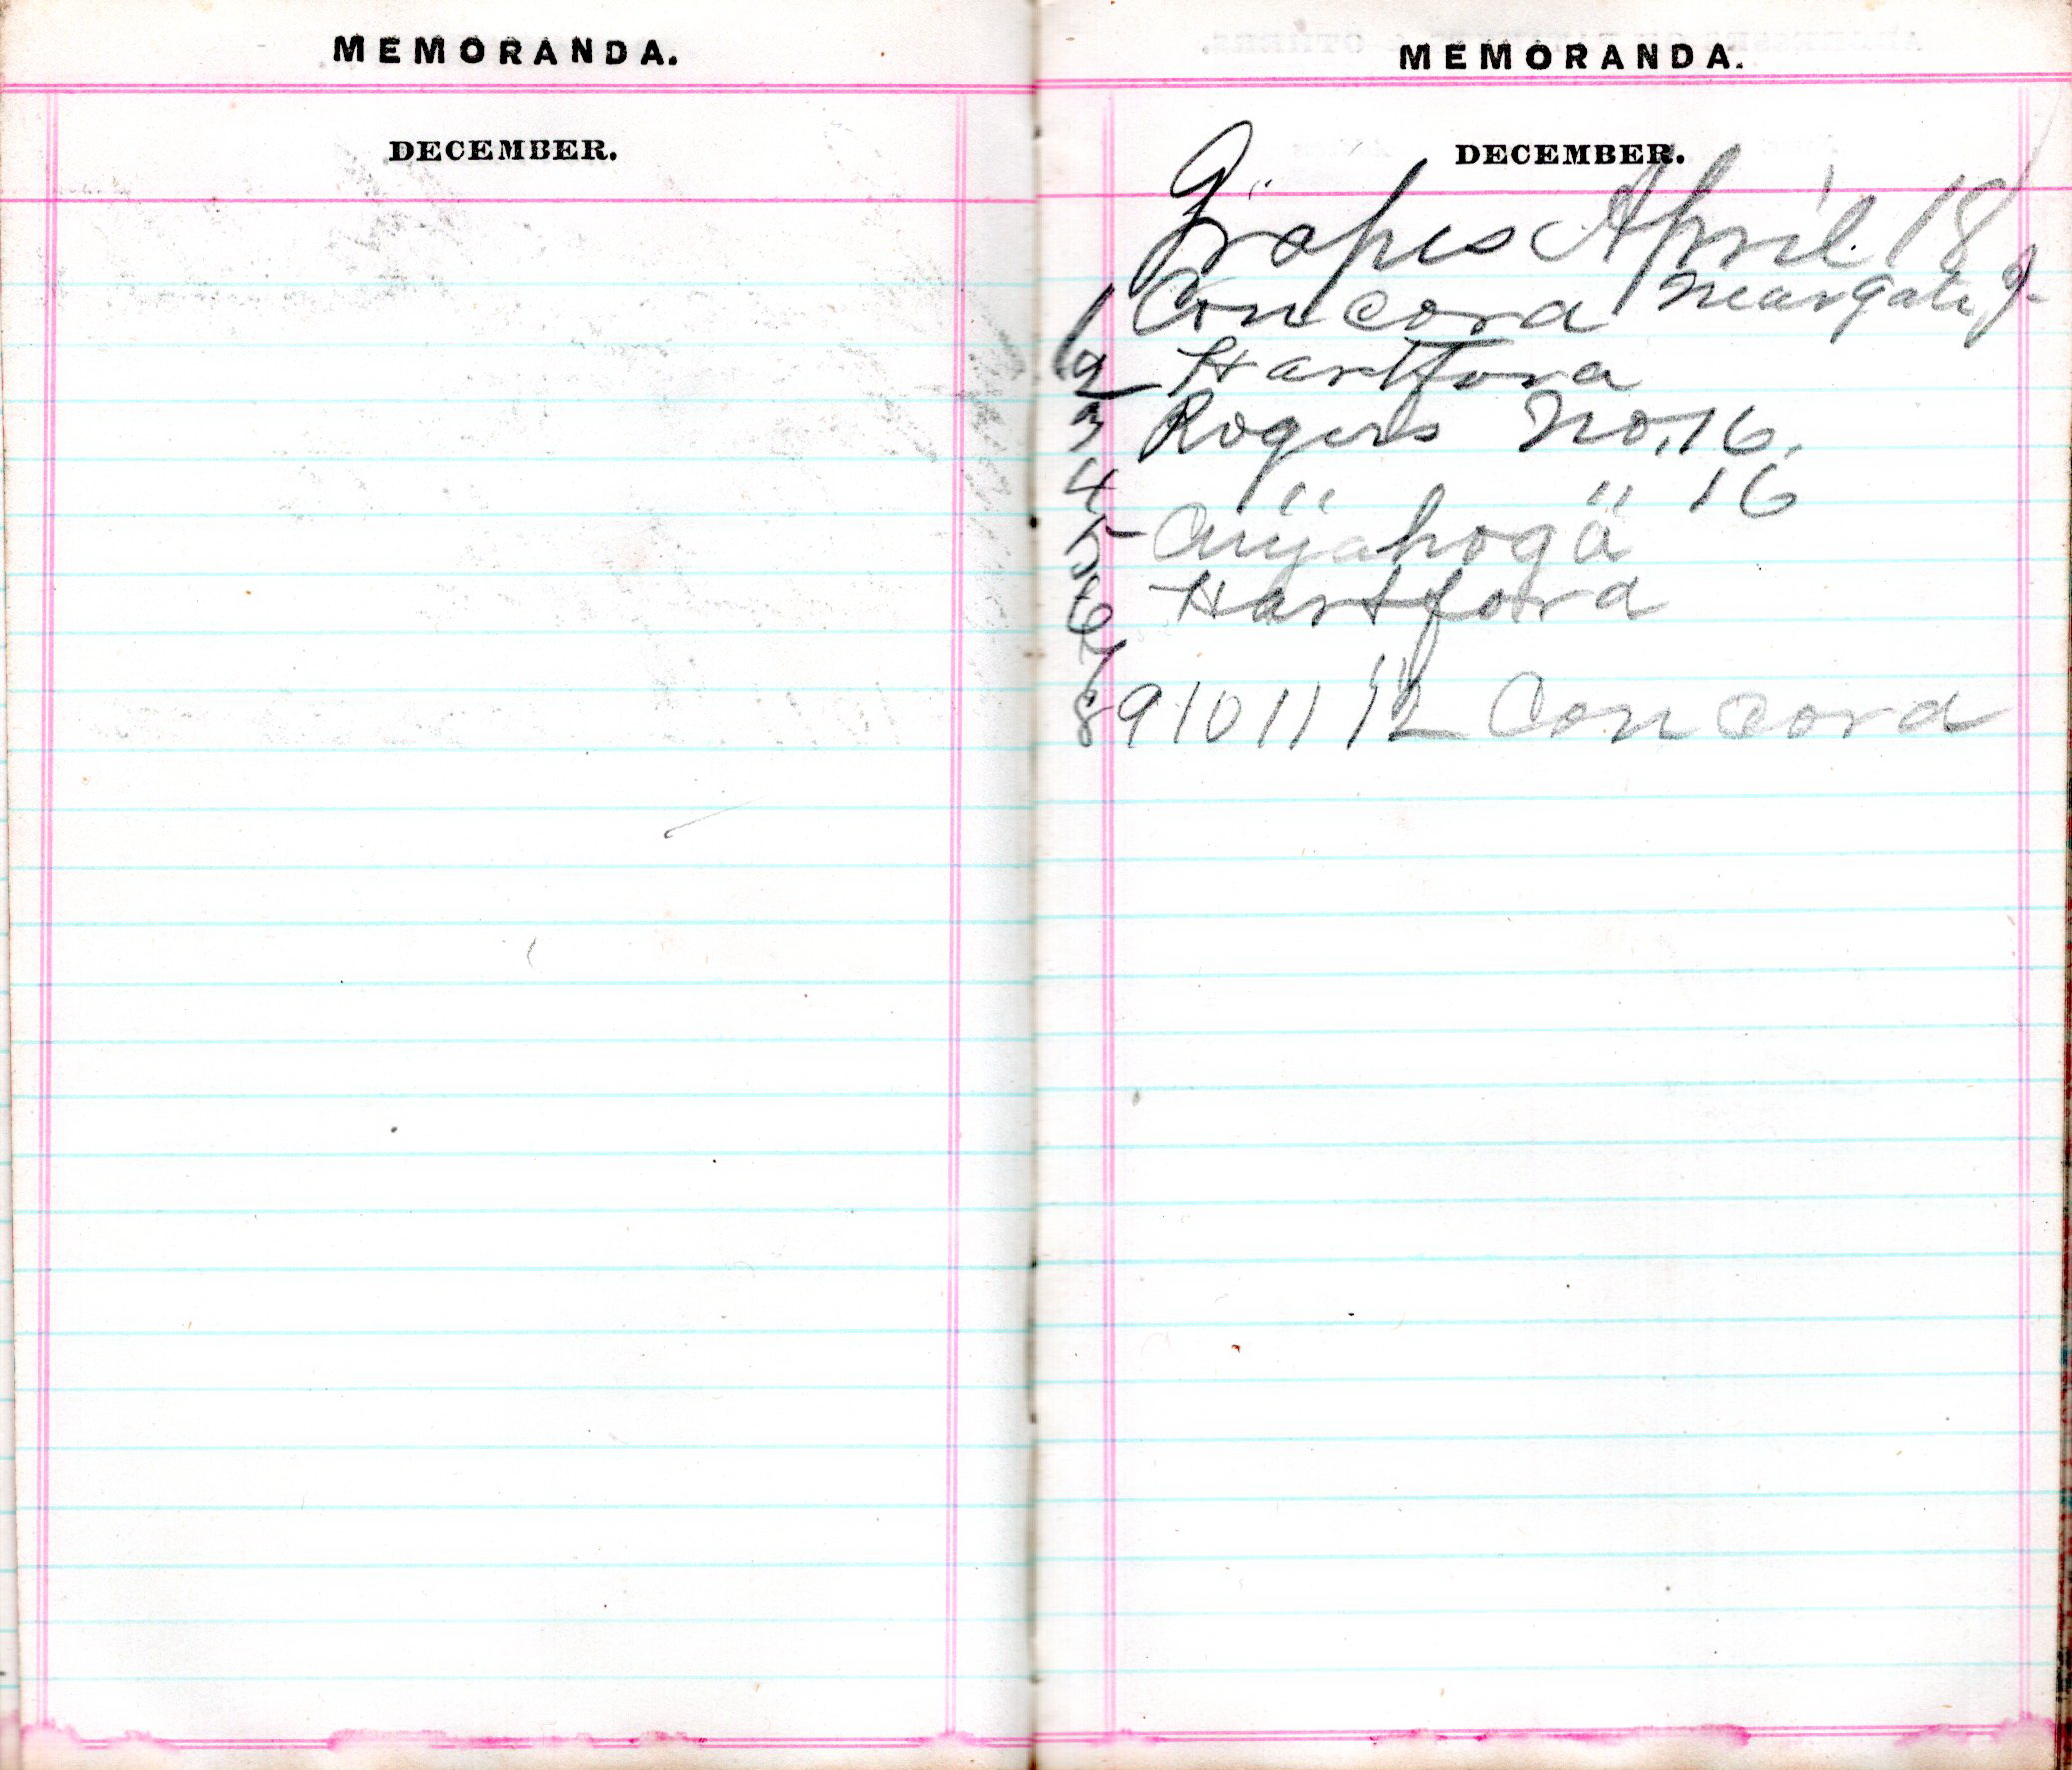 MEMORANDA.
DECEMBER.
MEMORANDA.
DECEMBER.
Grapes April 18
1 Concord near gate
2 Hartford
3 Rogers No. 16.
4 " " 16
5 Cuyahoga
6 Hartford
7 "
8 9 10 11 12 Concord